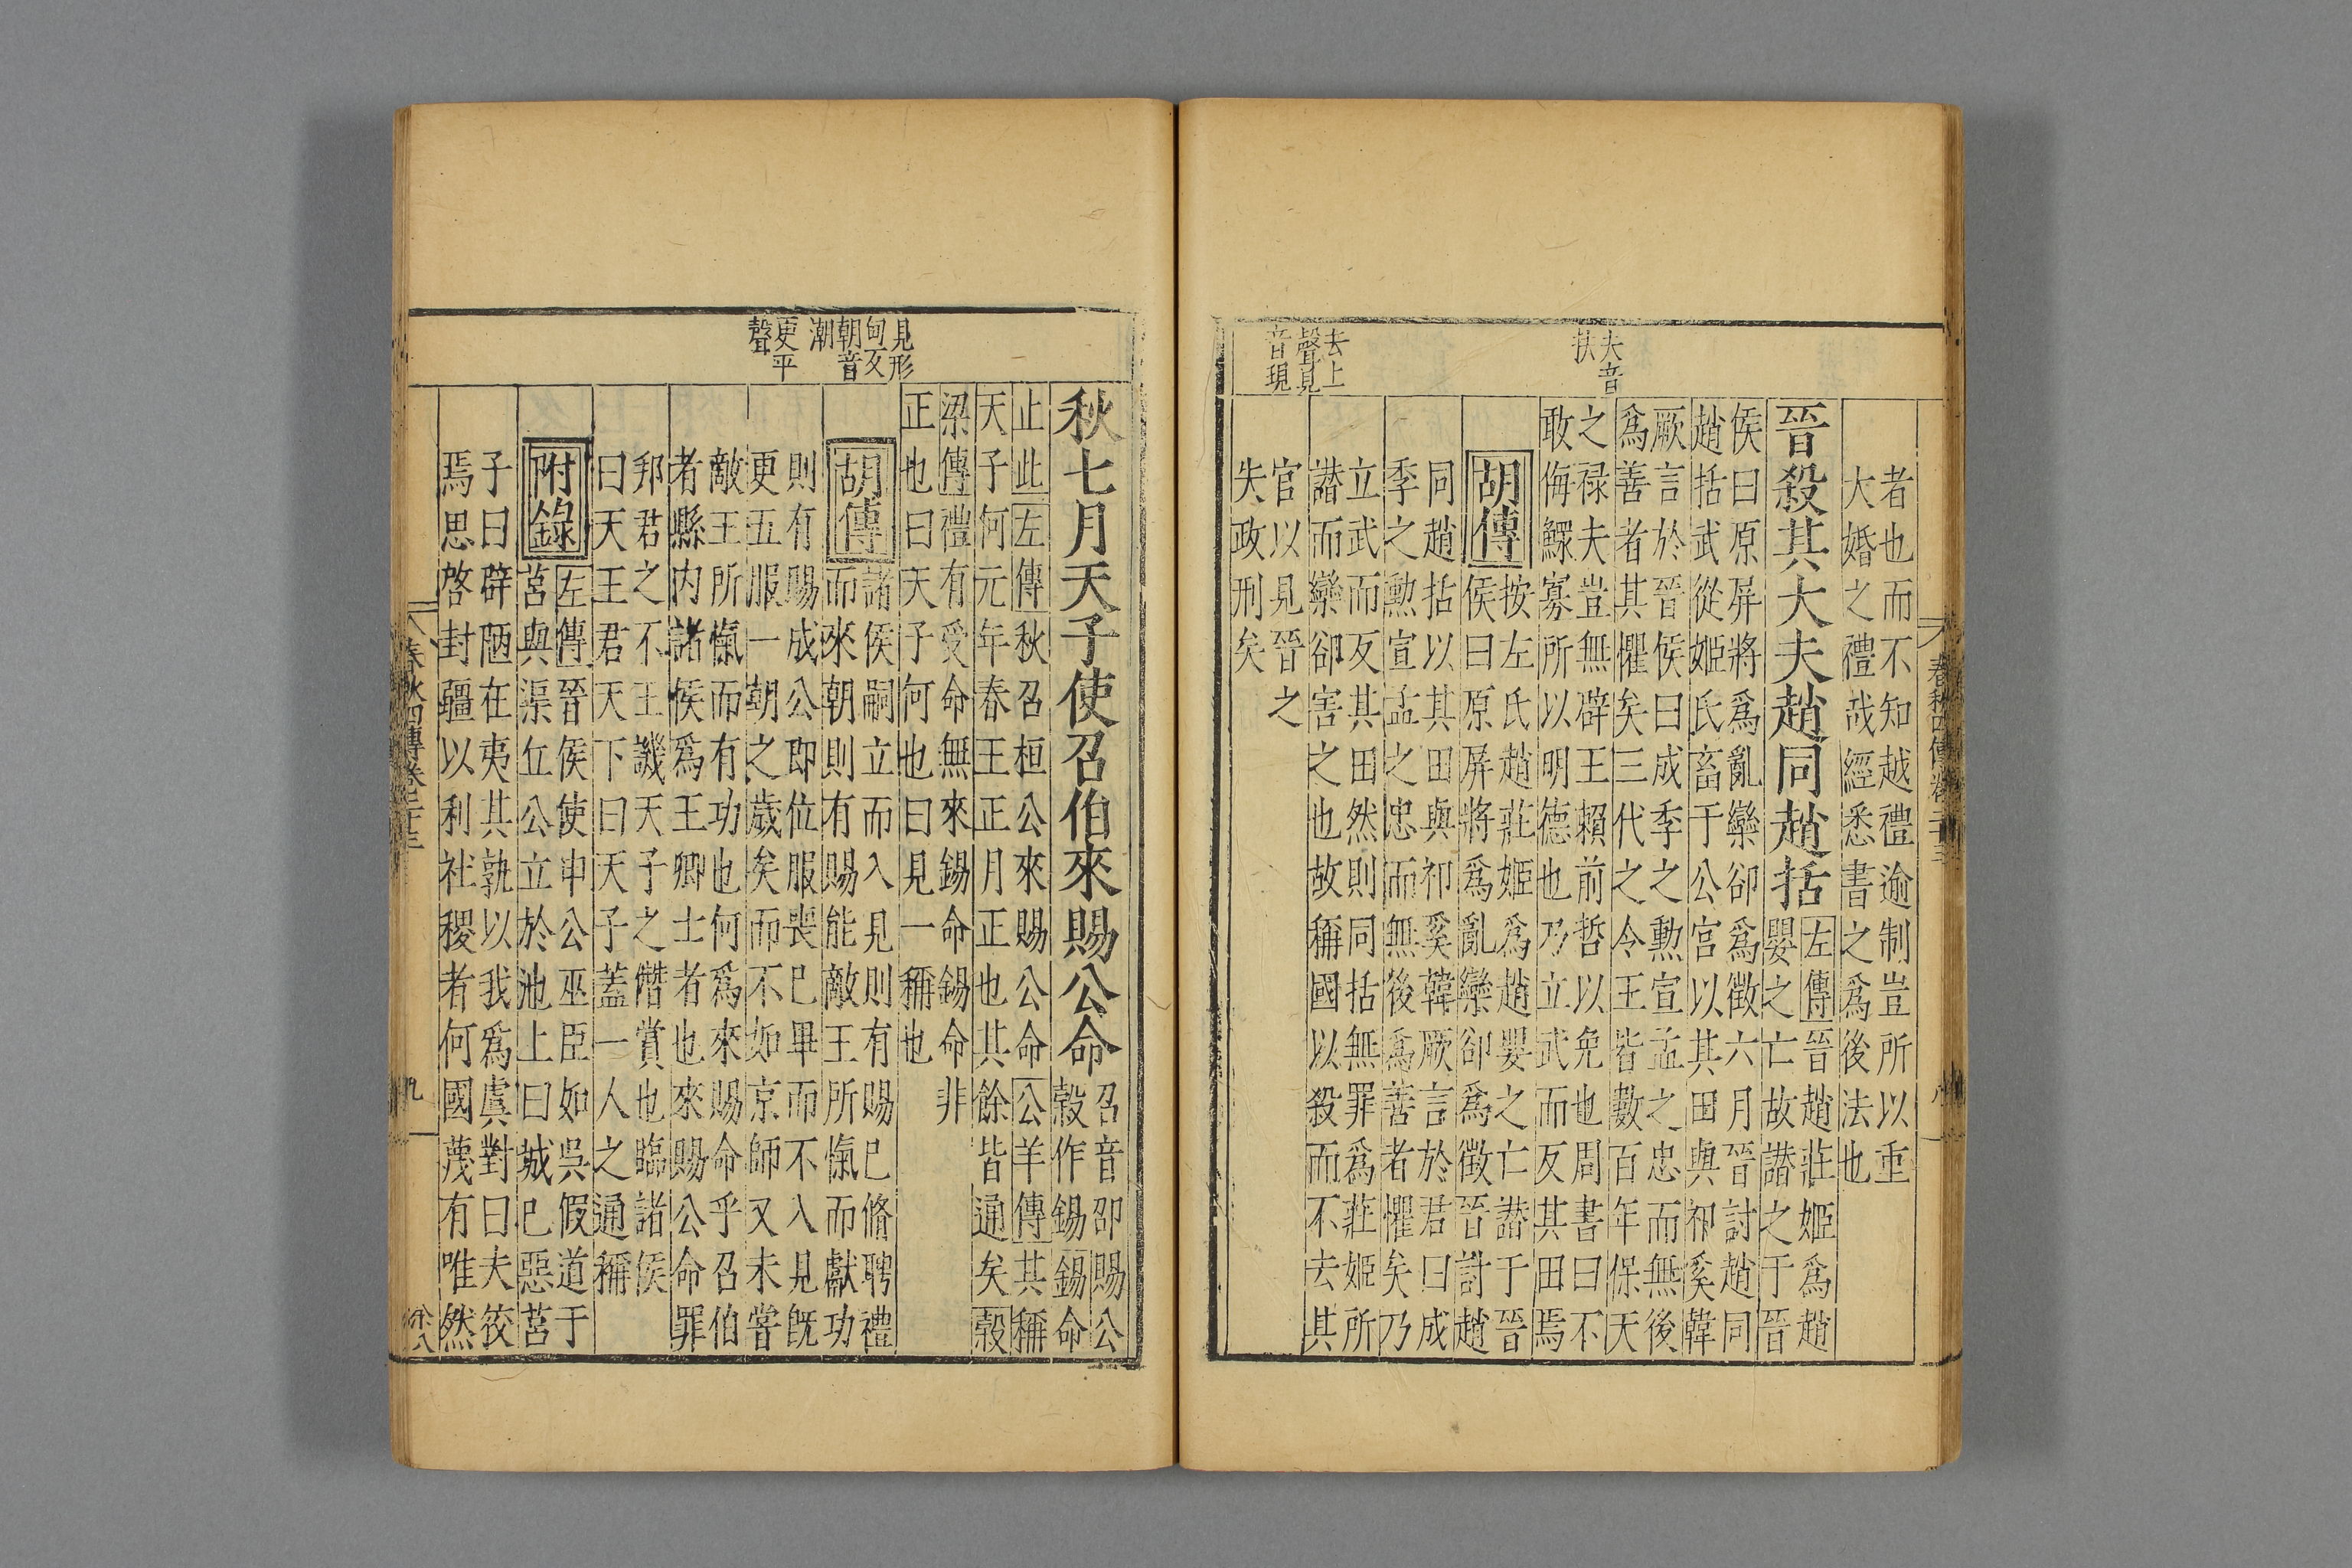 春秋四傳卷二十三
八
夫音
扶
去上
聲見
音現
者也而不知越禮逾制豈所以重
大婚之禮哉經悉書之爲後法也
晉殺其大夫趙同趙括
左傳晉趙莊姬爲趙
嬰之亡故譖之于晉
侯曰原屏將爲亂欒卻爲徵六月晉討趙同
趙括武從姬氏畜于公宮以其田與祁奚韓
厥言於晉侯曰成季之勳宣孟之忠而無後
爲善者其懼矣三代之令王皆數百年保天
之禄夫豈無辟王賴前哲以免也周書曰不
敢侮鰥寡所以明德也乃立武而反其田焉
胡傳
按左氏趙莊姬爲趙嬰之亡譖于晉
侯曰原屏將爲亂欒卻爲徵晉討趙
同趙括以其田與祁奚韓厥言於君曰成
季之勳宣孟之忠而無後爲善者懼矣乃
立武而反其田然則同括無罪爲莊姬所
譖而欒卻害之也故稱國以殺而不去其
官以見晉之
失政刑矣
見形
甸反
朝音
潮
更平
聲
秋七月天子使召伯來賜公命
召音卲賜公
穀作錫錫命
止此左傳秋召桓公來賜公命公羊傳其稱
天子何元年春王正月正也其餘皆通矣穀
梁傳禮有受命無來錫命錫命非
正也曰天子何也曰見一稱也
胡傳
諸侯嗣立而入見則有賜已脩聘禮
而來朝則有賜能敵王所愾而獻功
則有賜成公即位服喪已畢而不入見既
更五服一朝之歲矣而不如京師又未嘗
敵王所愾而有功也何爲來賜命乎召伯
者縣内諸侯爲王卿士者也來賜公命罪
邦君之不王譏天子之僭賞也臨諸侯
曰天王君天下曰天子蓋一人之通稱
附錄
左傳晉侯使申公巫臣如吳假道于
莒與渠丘公立於池上曰城已惡莒
子曰辟陋在夷其孰以我爲虞對曰夫狡
焉思啓封疆以利社稷者何國蔑有唯然
春秋四傳卷二十三
九
徐八